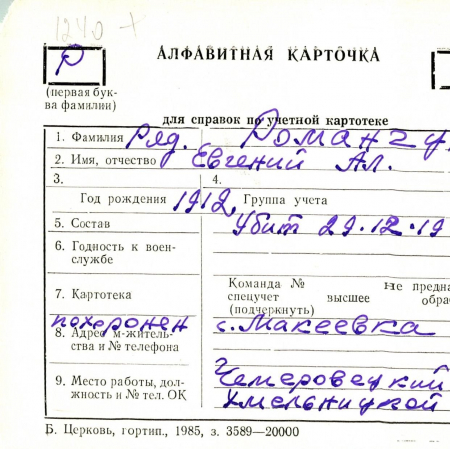 1240 +
Р
АЛФАВИТНАЯ КАРТОЧКА
(первая бук-
ва фамилии)
для справок по учетной картотеке
1. Фамилия Ряд. Романгу
2. Имя, отчество Евгений Ал.
3.
4.
Год рождения 1912, Группа учета
5. Состав Убит 29.12.19
6. Годность к воен-
службе
Команда № не предна
7. Картотека спецучет высшее обра
(подчеркнуть)
похоронен с. Макеевка
8. Адрес м-житель-
ства и № телефона
Чемеровецкий
9. Место работы, дол-
жность и № тел. ОК Хмельницкой
Б. Церковь, гортип., 1985, з. 3589—20000